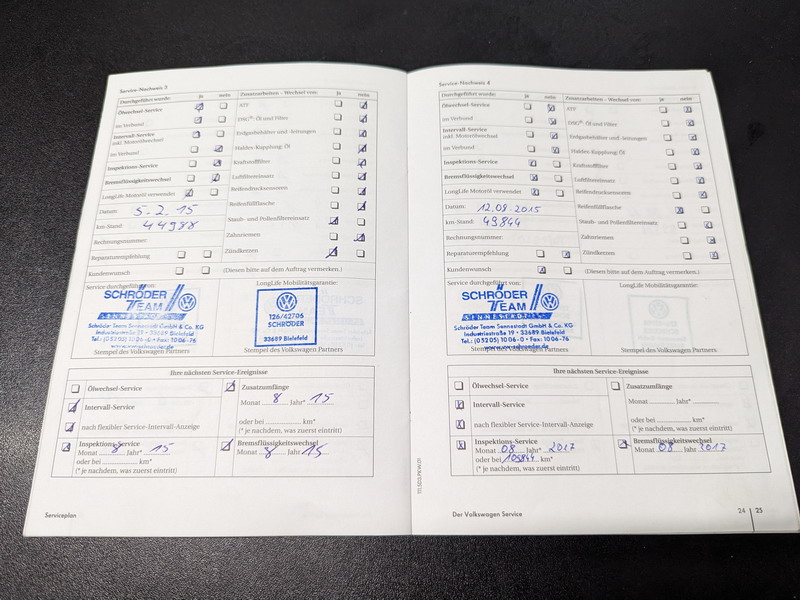 Service-Nachweis 3
Durchgeführt wurde: ja nein
Ölwechsel-Service
im Verbund
Intervall-Service
inkl. Motorölwechsel
im Verbund
Inspektions-Service
Bremsflüssigkeitswechsel
LongLife Motoröl verwendet
Datum: 5.2.15
km-Stand: 44988
Rechnungsnummer:
Reparaturempfehlung
Kundenwunsch
Zusatzarbeiten – Wechsel von: ja nein
ATF
DSG®: Öl und Filter
Erdgasbehälter und -leitungen
Haldex-Kupplung: Öl
Kraftstofffilter
Luftfiltereinsatz
Reifendrucksensoren
Reifenfüllflasche
Staub- und Pollenfiltereinsatz
Zahnriemen
Zündkerzen
(Diesen bitte auf dem Auftrag vermerken.)
Service durchgeführt von:
SCHRÖDER
TEAM
SENNESTADT
Schröder Team Sennestadt GmbH & Co. KG
Industriestraße 25 • 33689 Bielefeld
Tel.: (05205) 1006-0 • Fax: 1006-76
Stempel des Volkswagen Partners
LongLife Mobilitätsgarantie:
126/42706
SCHRÖDER
33689 Bielefeld
Stempel des Volkswagen Partners
Ihre nächsten Service-Ereignisse
Ölwechsel-Service
Intervall-Service
nach flexibler Service-Intervall-Anzeige
Inspektions-Service
Monat 8 Jahr* 15
oder bei km*
(* je nachdem, was zuerst eintritt)
Zusatzumfänge
Monat 8 Jahr* 15
oder bei km*
(* je nachdem, was zuerst eintritt)
Bremsflüssigkeitswechsel
Monat 8 Jahr 15
Serviceplan
Service-Nachweis 4
Durchgeführt wurde: ja nein
Ölwechsel-Service
im Verbund
Intervall-Service
inkl. Motorölwechsel
im Verbund
Inspektions-Service
Bremsflüssigkeitswechsel
LongLife Motoröl verwendet
Datum: 12.08.2015
km-Stand: 49844
Rechnungsnummer:
Reparaturempfehlung
Kundenwunsch
Zusatzarbeiten – Wechsel von: ja nein
ATF
DSG®: Öl und Filter
Erdgasbehälter und -leitungen
Haldex-Kupplung: Öl
Kraftstofffilter
Luftfiltereinsatz
Reifendrucksensoren
Reifenfüllflasche
Staub- und Pollenfiltereinsatz
Zahnriemen
Zündkerzen
(Diesen bitte auf dem Auftrag vermerken.)
Service durchgeführt von:
SCHRÖDER
TEAM
SENNESTADT
Schröder Team Sennestadt GmbH & Co. KG
Industriestraße 19 • 33689 Bielefeld
Tel.: (05205) 1006-0 • Fax: 1006-76
www.vw-schroeder.de
Stempel des Volkswagen Partners
LongLife Mobilitätsgarantie:
Stempel des Volkswagen Partners
Ihre nächsten Service-Ereignisse
Ölwechsel-Service
Intervall-Service
nach flexibler Service-Intervall-Anzeige
Inspektions-Service
Monat 08 Jahr* 2017
oder bei 109844 km*
(* je nachdem, was zuerst eintritt)
Zusatzumfänge
Monat Jahr*
oder bei km*
(* je nachdem, was zuerst eintritt)
Bremsflüssigkeitswechsel
Monat 08 Jahr 2017
Der Volkswagen Service
24 25